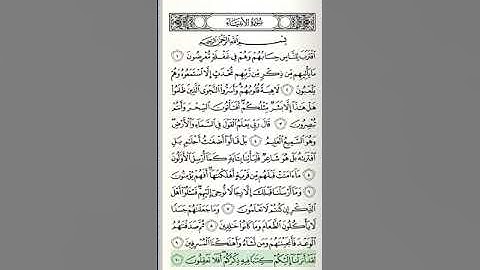 سُورَةُ الْأَنْبِيَاءِ
بِسْمِ اللَّهِ الرَّحْمَٰنِ الرَّحِيمِ
اقْتَرَبَ لِلنَّاسِ حِسَابُهُمْ وَهُمْ فِي غَفْلَةٍ مُعْرِضُونَ ١
مَا يَأْتِيهِمْ مِنْ ذِكْرٍ مِنْ رَبِّهِمْ مُحْدَثٍ إِلَّا اسْتَمَعُوهُ وَهُمْ
يَلْعَبُونَ ٢ لَاهِيَةً قُلُوبُهُمْ وَأَسَرُّوا النَّجْوَى الَّذِينَ ظَلَمُوا
هَلْ هَٰذَا إِلَّا بَشَرٌ مِثْلُكُمْ أَفَتَأْتُونَ السِّحْرَ وَأَنْتُمْ
تُبْصِرُونَ ٣ قَالَ رَبِّي يَعْلَمُ الْقَوْلَ فِي السَّمَاءِ وَالْأَرْضِ
وَهُوَ السَّمِيعُ الْعَلِيمُ ٤ بَلْ قَالُوا أَضْغَاثُ أَحْلَامٍ بَلِ
افْتَرَاهُ بَلْ هُوَ شَاعِرٌ فَلْيَأْتِنَا بِآيَةٍ كَمَا أُرْسِلَ الْأَوَّلُونَ
٥ مَا آمَنَتْ قَبْلَهُمْ مِنْ قَرْيَةٍ أَهْلَكْنَاهَا أَفَهُمْ يُؤْمِنُونَ
٦ وَمَا أَرْسَلْنَا قَبْلَكَ إِلَّا رِجَالًا نُوحِي إِلَيْهِمْ فَاسْأَلُوا أَهْلَ
الذِّكْرِ إِنْ كُنْتُمْ لَا تَعْلَمُونَ ٧ وَمَا جَعَلْنَاهُمْ جَسَدًا
لَا يَأْكُلُونَ الطَّعَامَ وَمَا كَانُوا خَالِدِينَ ٨ ثُمَّ صَدَقْنَاهُمُ
الْوَعْدَ فَأَنْجَيْنَاهُمْ وَمَنْ نَشَاءُ وَأَهْلَكْنَا الْمُسْرِفِينَ ٩
لَقَدْ أَنْزَلْنَا إِلَيْكُمْ كِتَابًا فِيهِ ذِكْرُكُمْ أَفَلَا تَعْقِلُونَ ١٠